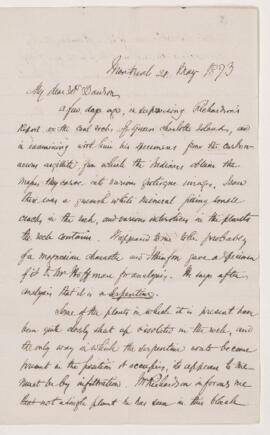 Montreal 20 May 1873
My dear Dr Dawson,
A few days ago, in supervising Richardson's
Report on the coal rocks of Queen Charlotte Islands, and
in examining with him his specimens from the carbon-
aceous argillite from which the Indians obtain the
they carve into various grotesque images, I saw
there was a greenish white mineral filling small
cracks in the rock, and various interstices in the plants
the rock contains. It appeared to me to be probably
of a magnesian character and I therefore gave a specimen
of it to Mr Hoffmann for analysis. He says after
analysis that it is a Serpentine.
Some of the plants in which it is present have
been quite closely shut up insolated in the rock, and
the only way in which the serpentine could become
present in the position it occupies, it appears to me
must be by infiltration. Mr Richardson informs me
that not a single plant he has seen in this black